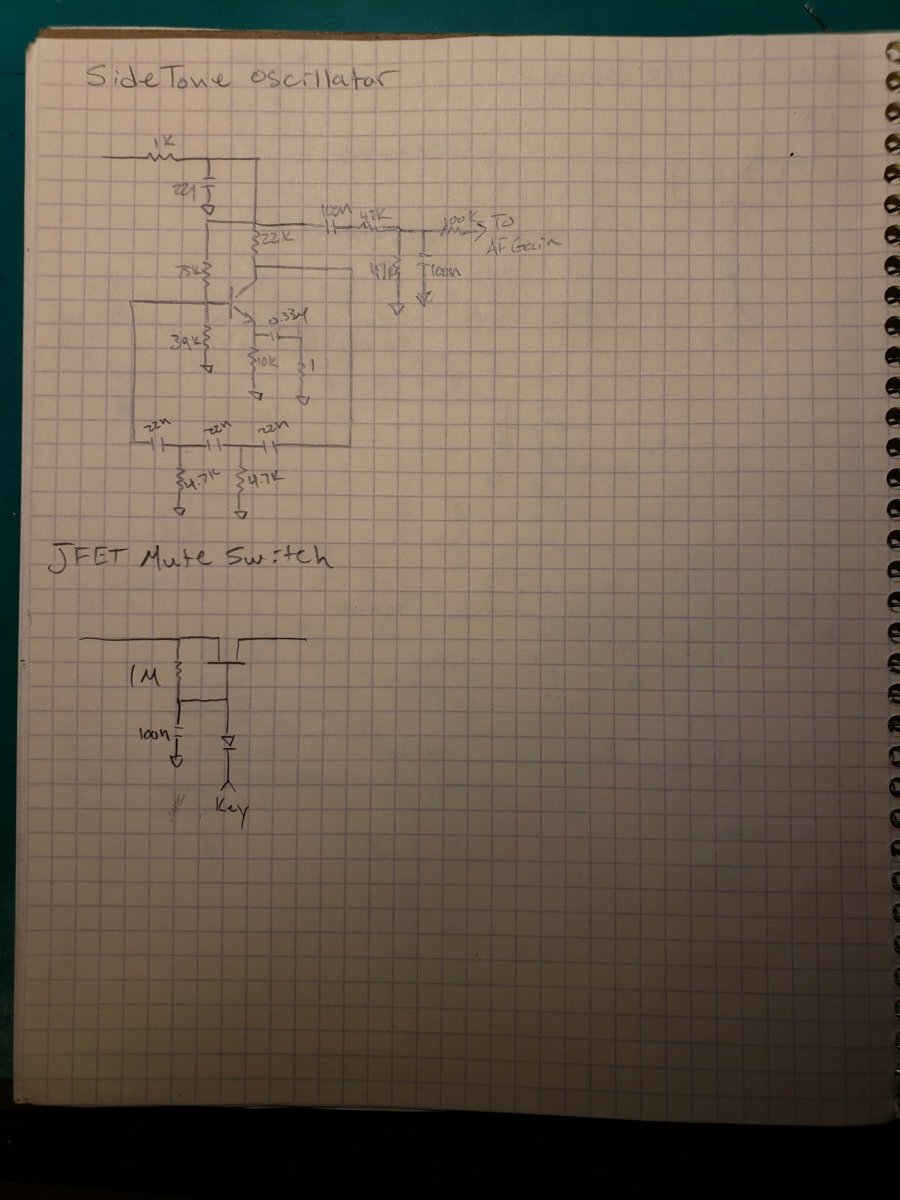 SideTone oscillator
1K
22µ
100n 47K 100K To
AF Gain
22K
75K
47K 100n
0.33µ
39K
10K 1
22n 22n 22n
4.7K 4.7K
JFET Mute Switch
1M
100n
Key